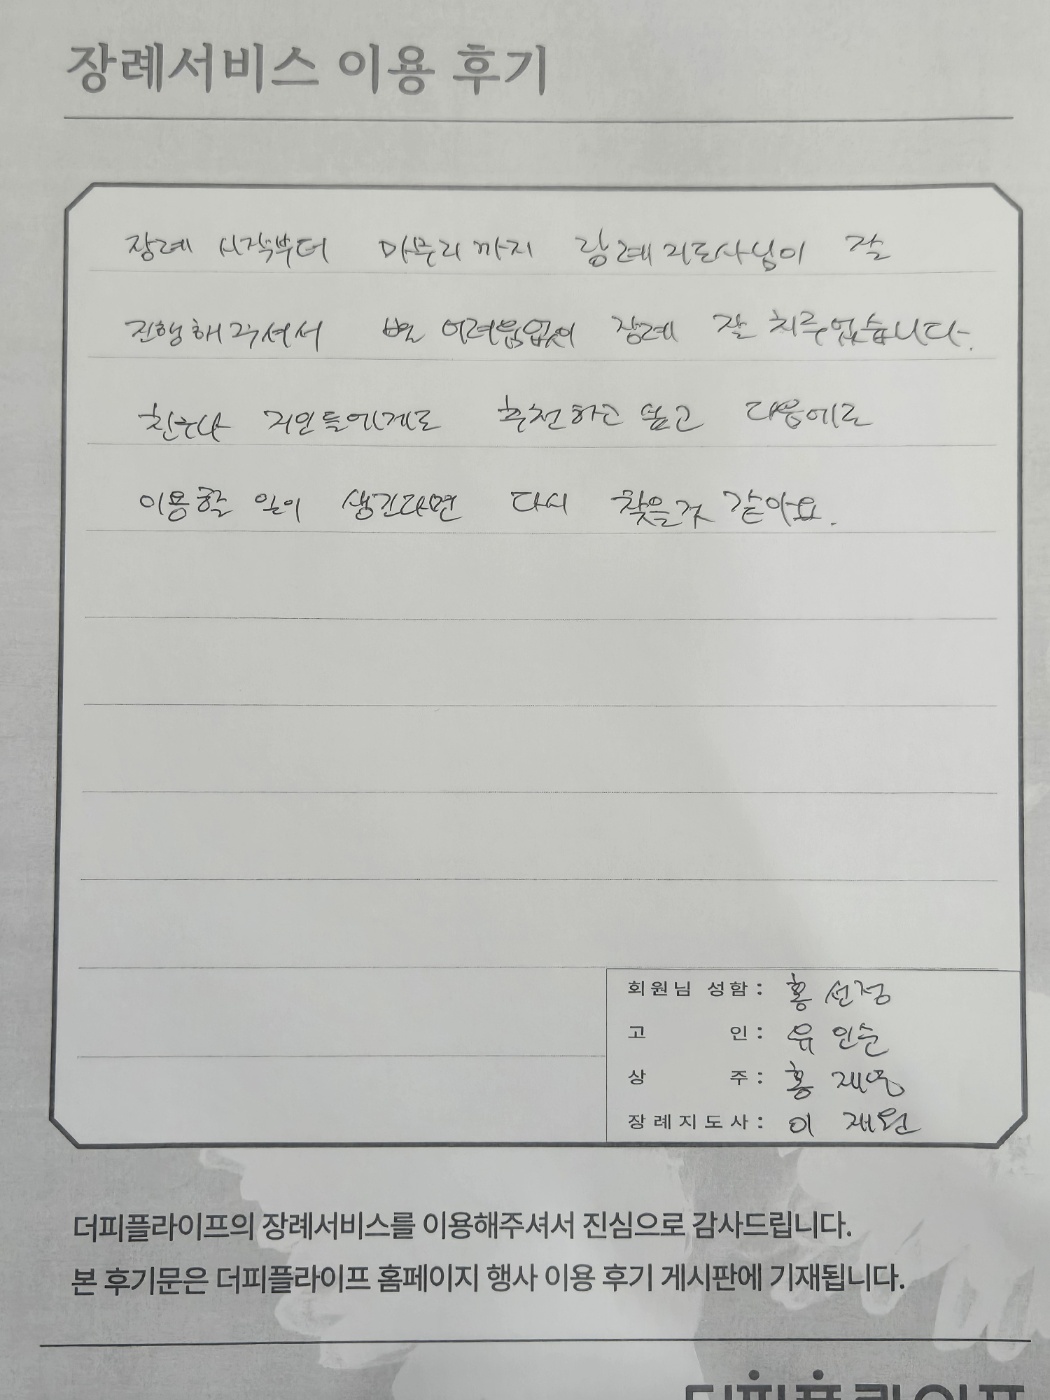 장례서비스 이용 후기
장례 시작부터 마무리까지 장례지도사님이 잘
진행해주셔서 별 어려움없이 장례 잘 치루었습니다.
친구나 지인들에게도 추천하고 싶고 다음에도
이용할 일이 생긴다면 다시 찾을것 같아요.
회원님 성함: 홍선정
고 인: 유인순
상 주: 홍
장례지도사: 이재원
더피플라이프의 장례서비스를 이용해주셔서 진심으로 감사드립니다.
본 후기문은 더피플라이프 홈페이지 행사 이용 후기 게시판에 기재됩니다.
더피플라이프